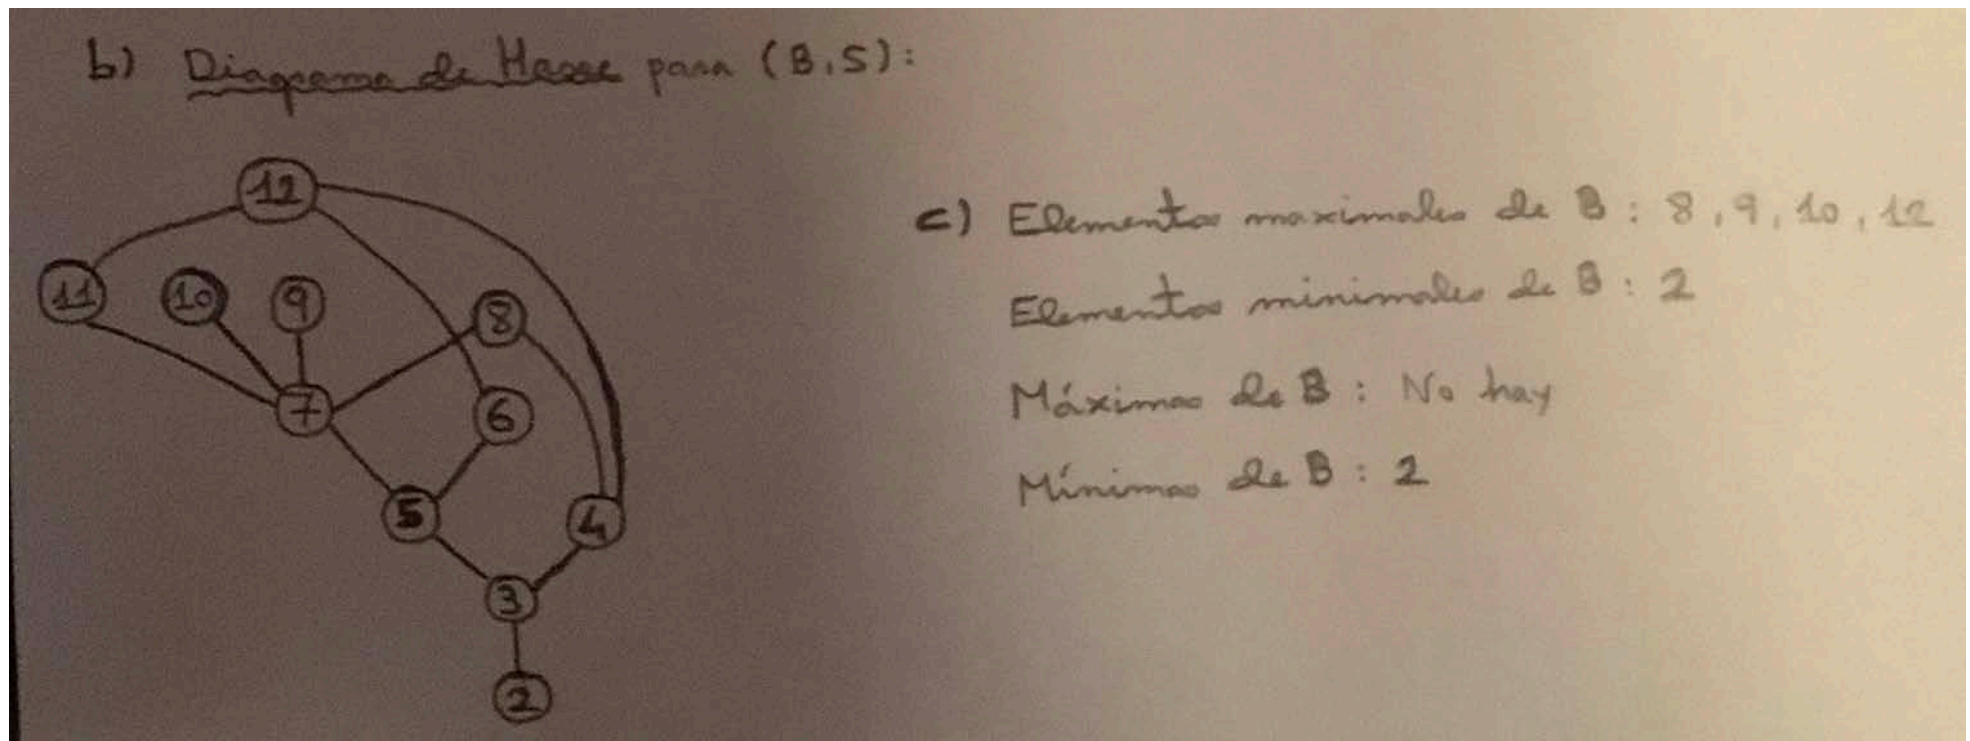 b) Diagrama de Hasse para (B,S):
12
11 10 9 8
7 6
5 4
3
2
c) Elementos maximales de B: 8, 9, 10, 12
Elementos minimales de B: 2
Máximo de B: No hay
Mínimo de B: 2